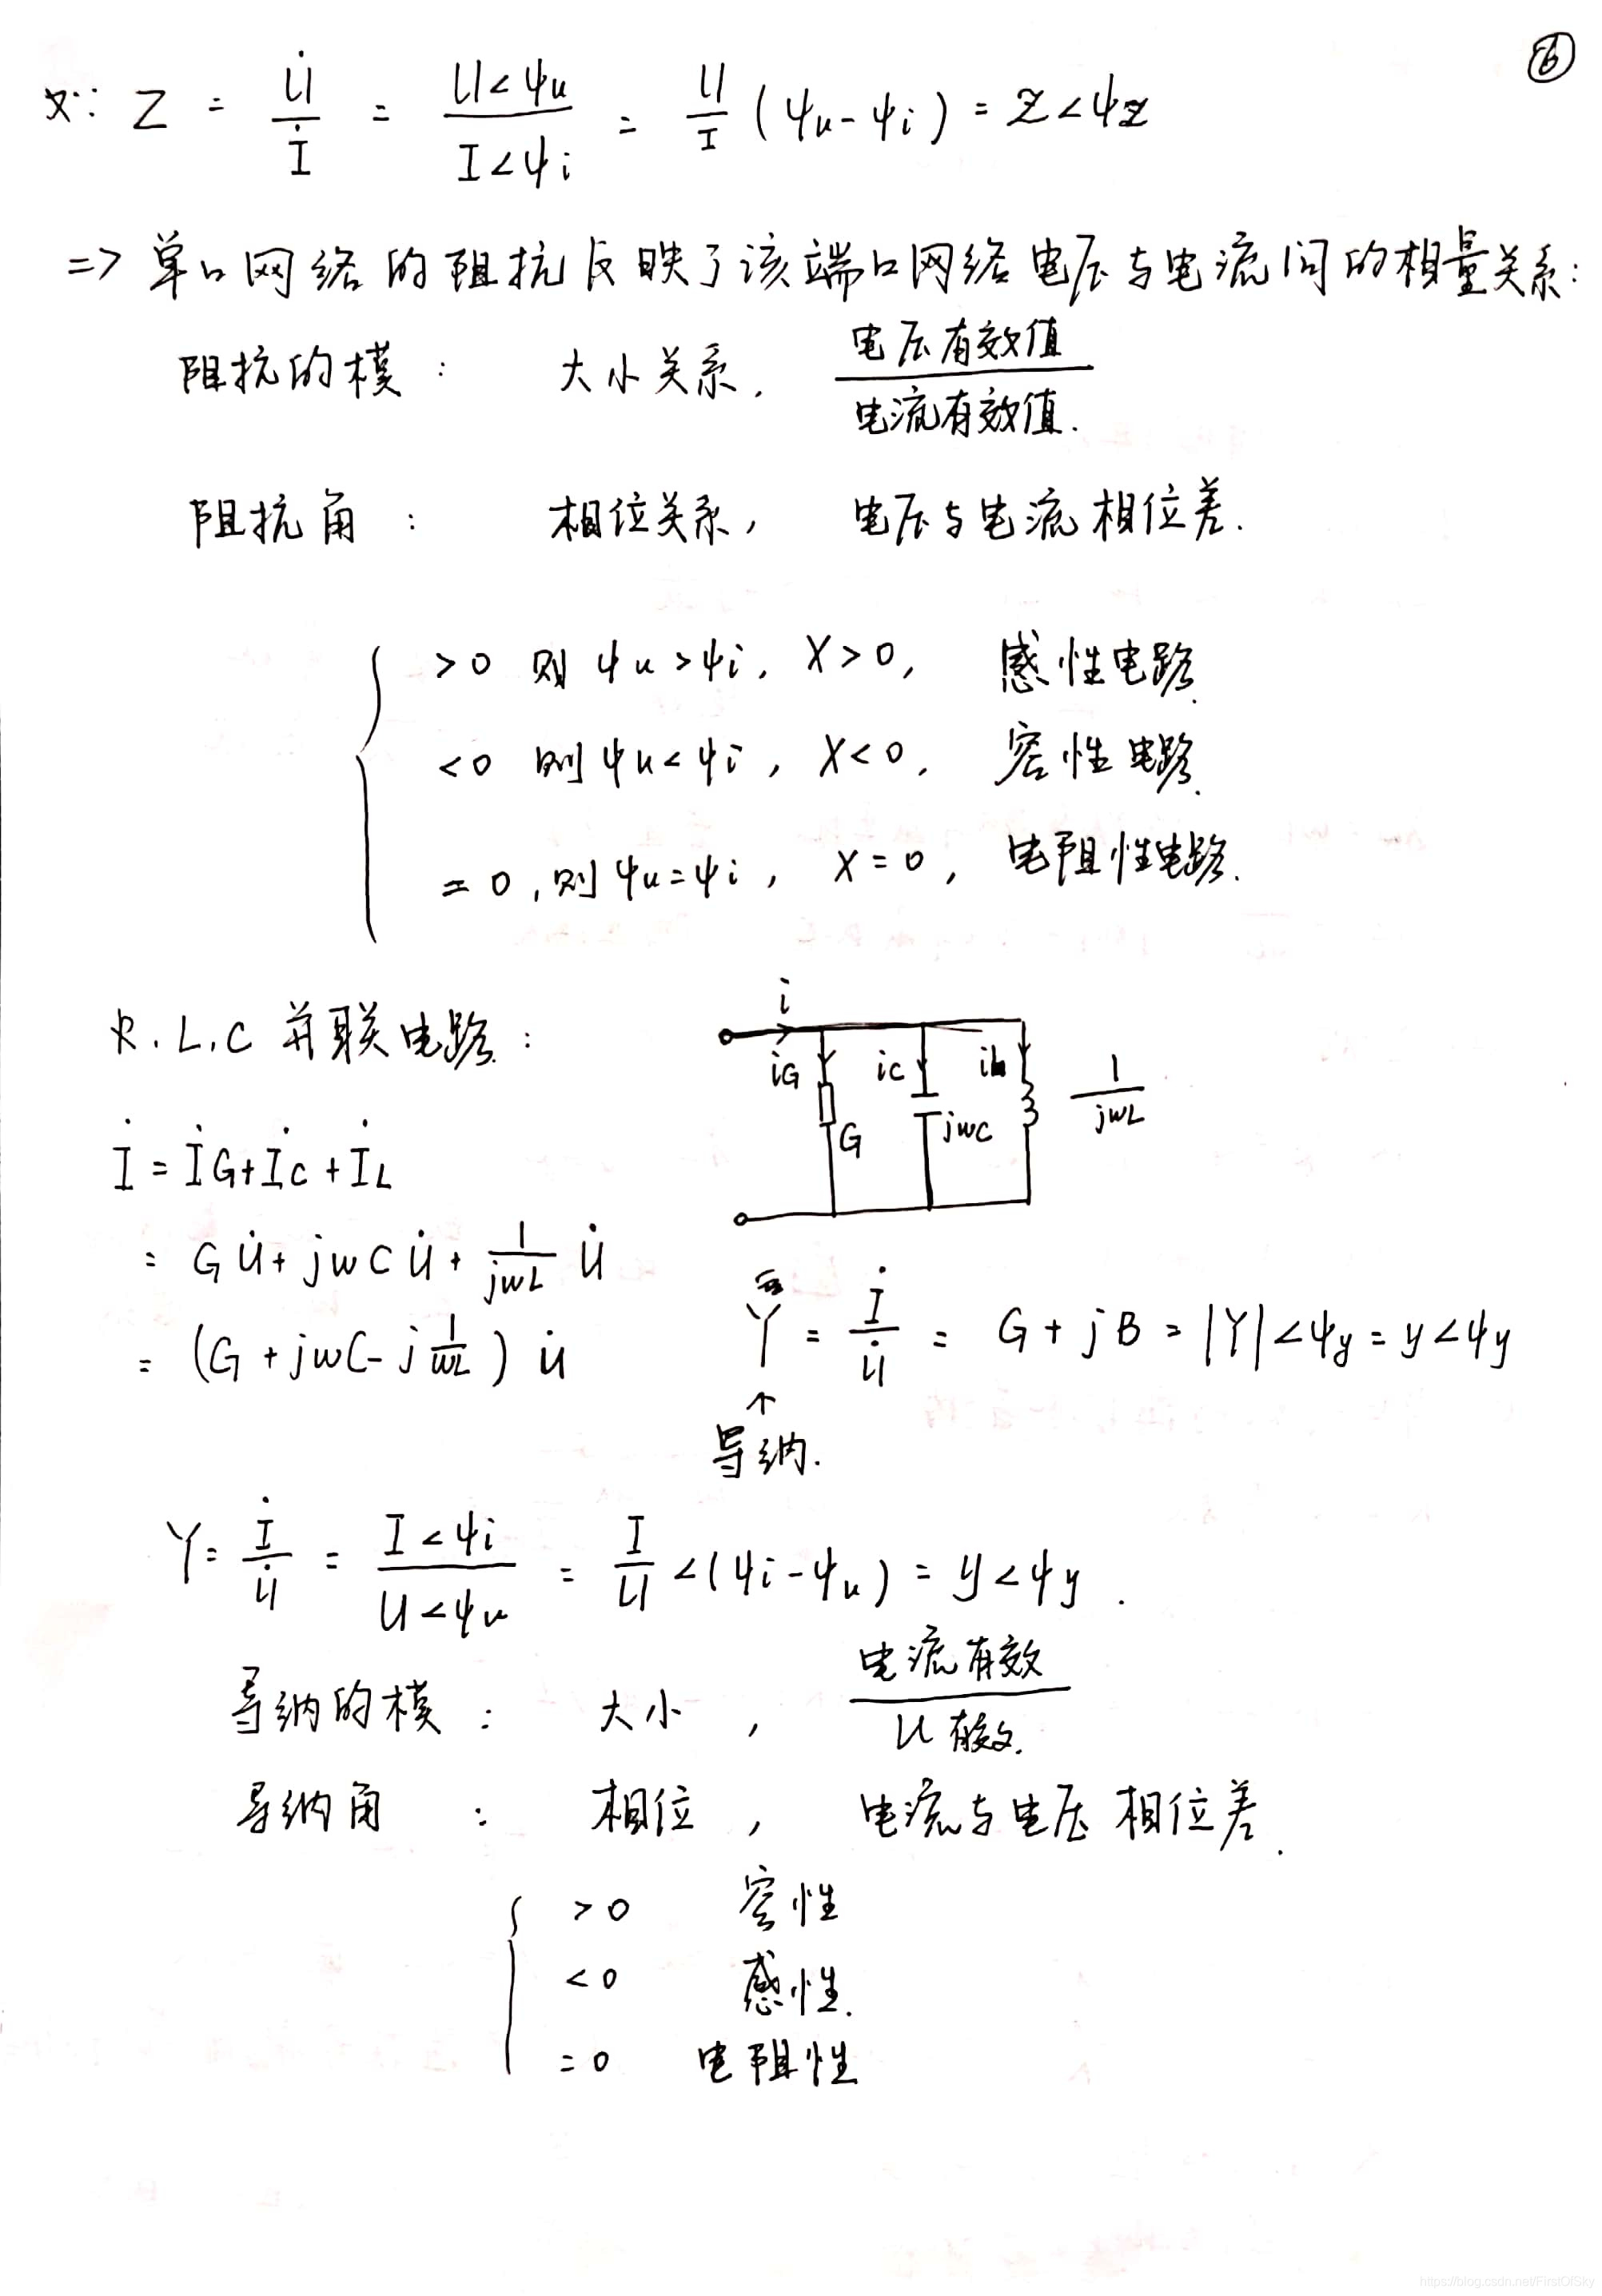 ⑥
又∵ Z = U̇/İ = U∠ψu/I∠ψi = U/I (ψu-ψi) = z∠ψz
=> 单口网络的阻抗反映了该端口网络电压与电流间的相量关系:
阻抗的模: 大小关系, 电压有效值/电流有效值.
阻抗角: 相位关系, 电压与电流相位差.
>0 则 ψu>ψi, X>0, 感性电路.
<0 则 ψu<ψi, X<0, 容性电路.
=0, 则 ψu=ψi, X=0, 电阻性电路.
R.L.C 并联电路:
i
iG iC iL
G jwC 1/jwL
İ = İG+İC+İL
= GU̇+jwCU̇+1/jwL U̇
= (G+jwC-j1/wL) U̇
Y = İ/U̇ = G+jB = |Y|∠ψy = y∠ψy
↑
导纳.
Y = İ/U̇ = I∠ψi/U∠ψu = I/U ∠(ψi-ψu) = y∠ψy.
导纳的模: 大小, 电流有效/U有效.
导纳角: 相位, 电流与电压相位差.
>0 容性
<0 感性.
=0 电阻性
https://blog.csdn.net/FirstOfSky